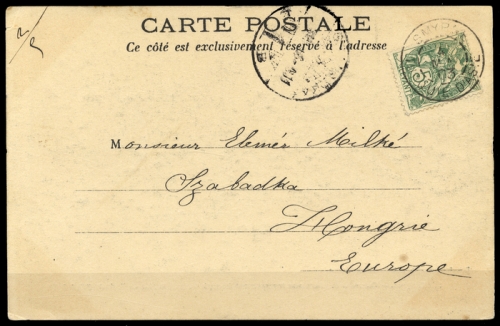 2/9
CARTE POSTALE
Ce côté est exclusivement réservé à l'adresse
5
Monsieur Elemér Milkó
Szabadka
Hongrie
Europe